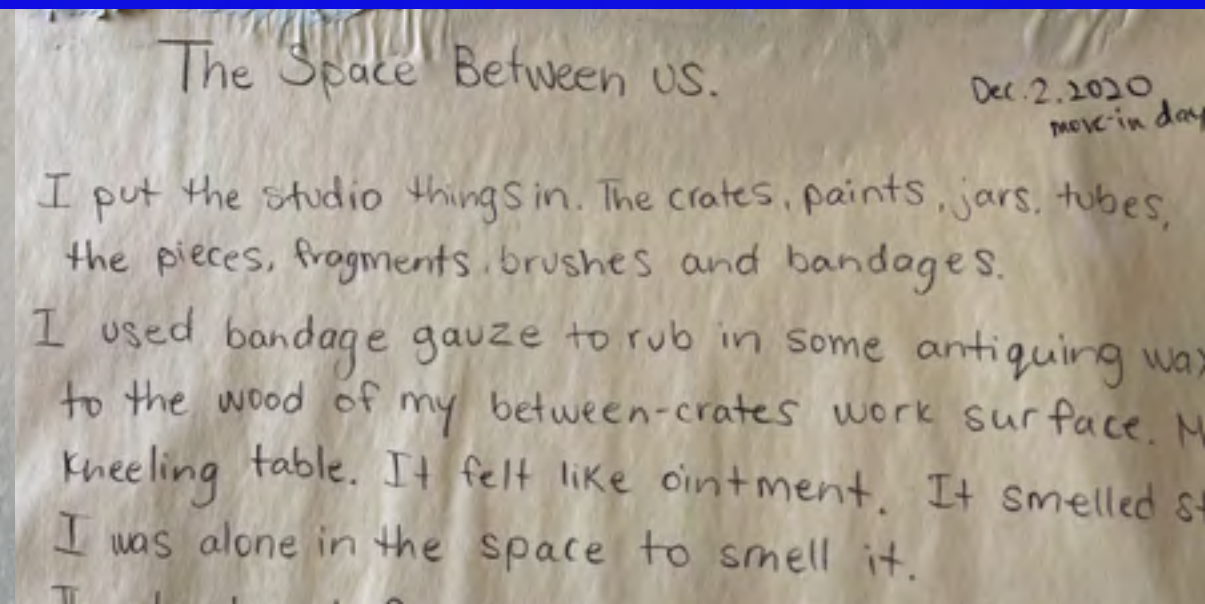 The Space Between us.
Dec. 2. 2020
move-in day
I put the studio things in. The crates, paints, jars, tubes,
the pieces, fragments, brushes and bandages.
I used bandage gauze to rub in some antiquing wax
to the wood of my between-crates work surface.
Kneeling table. It felt like ointment. It smelled
I was alone in the space to smell it.